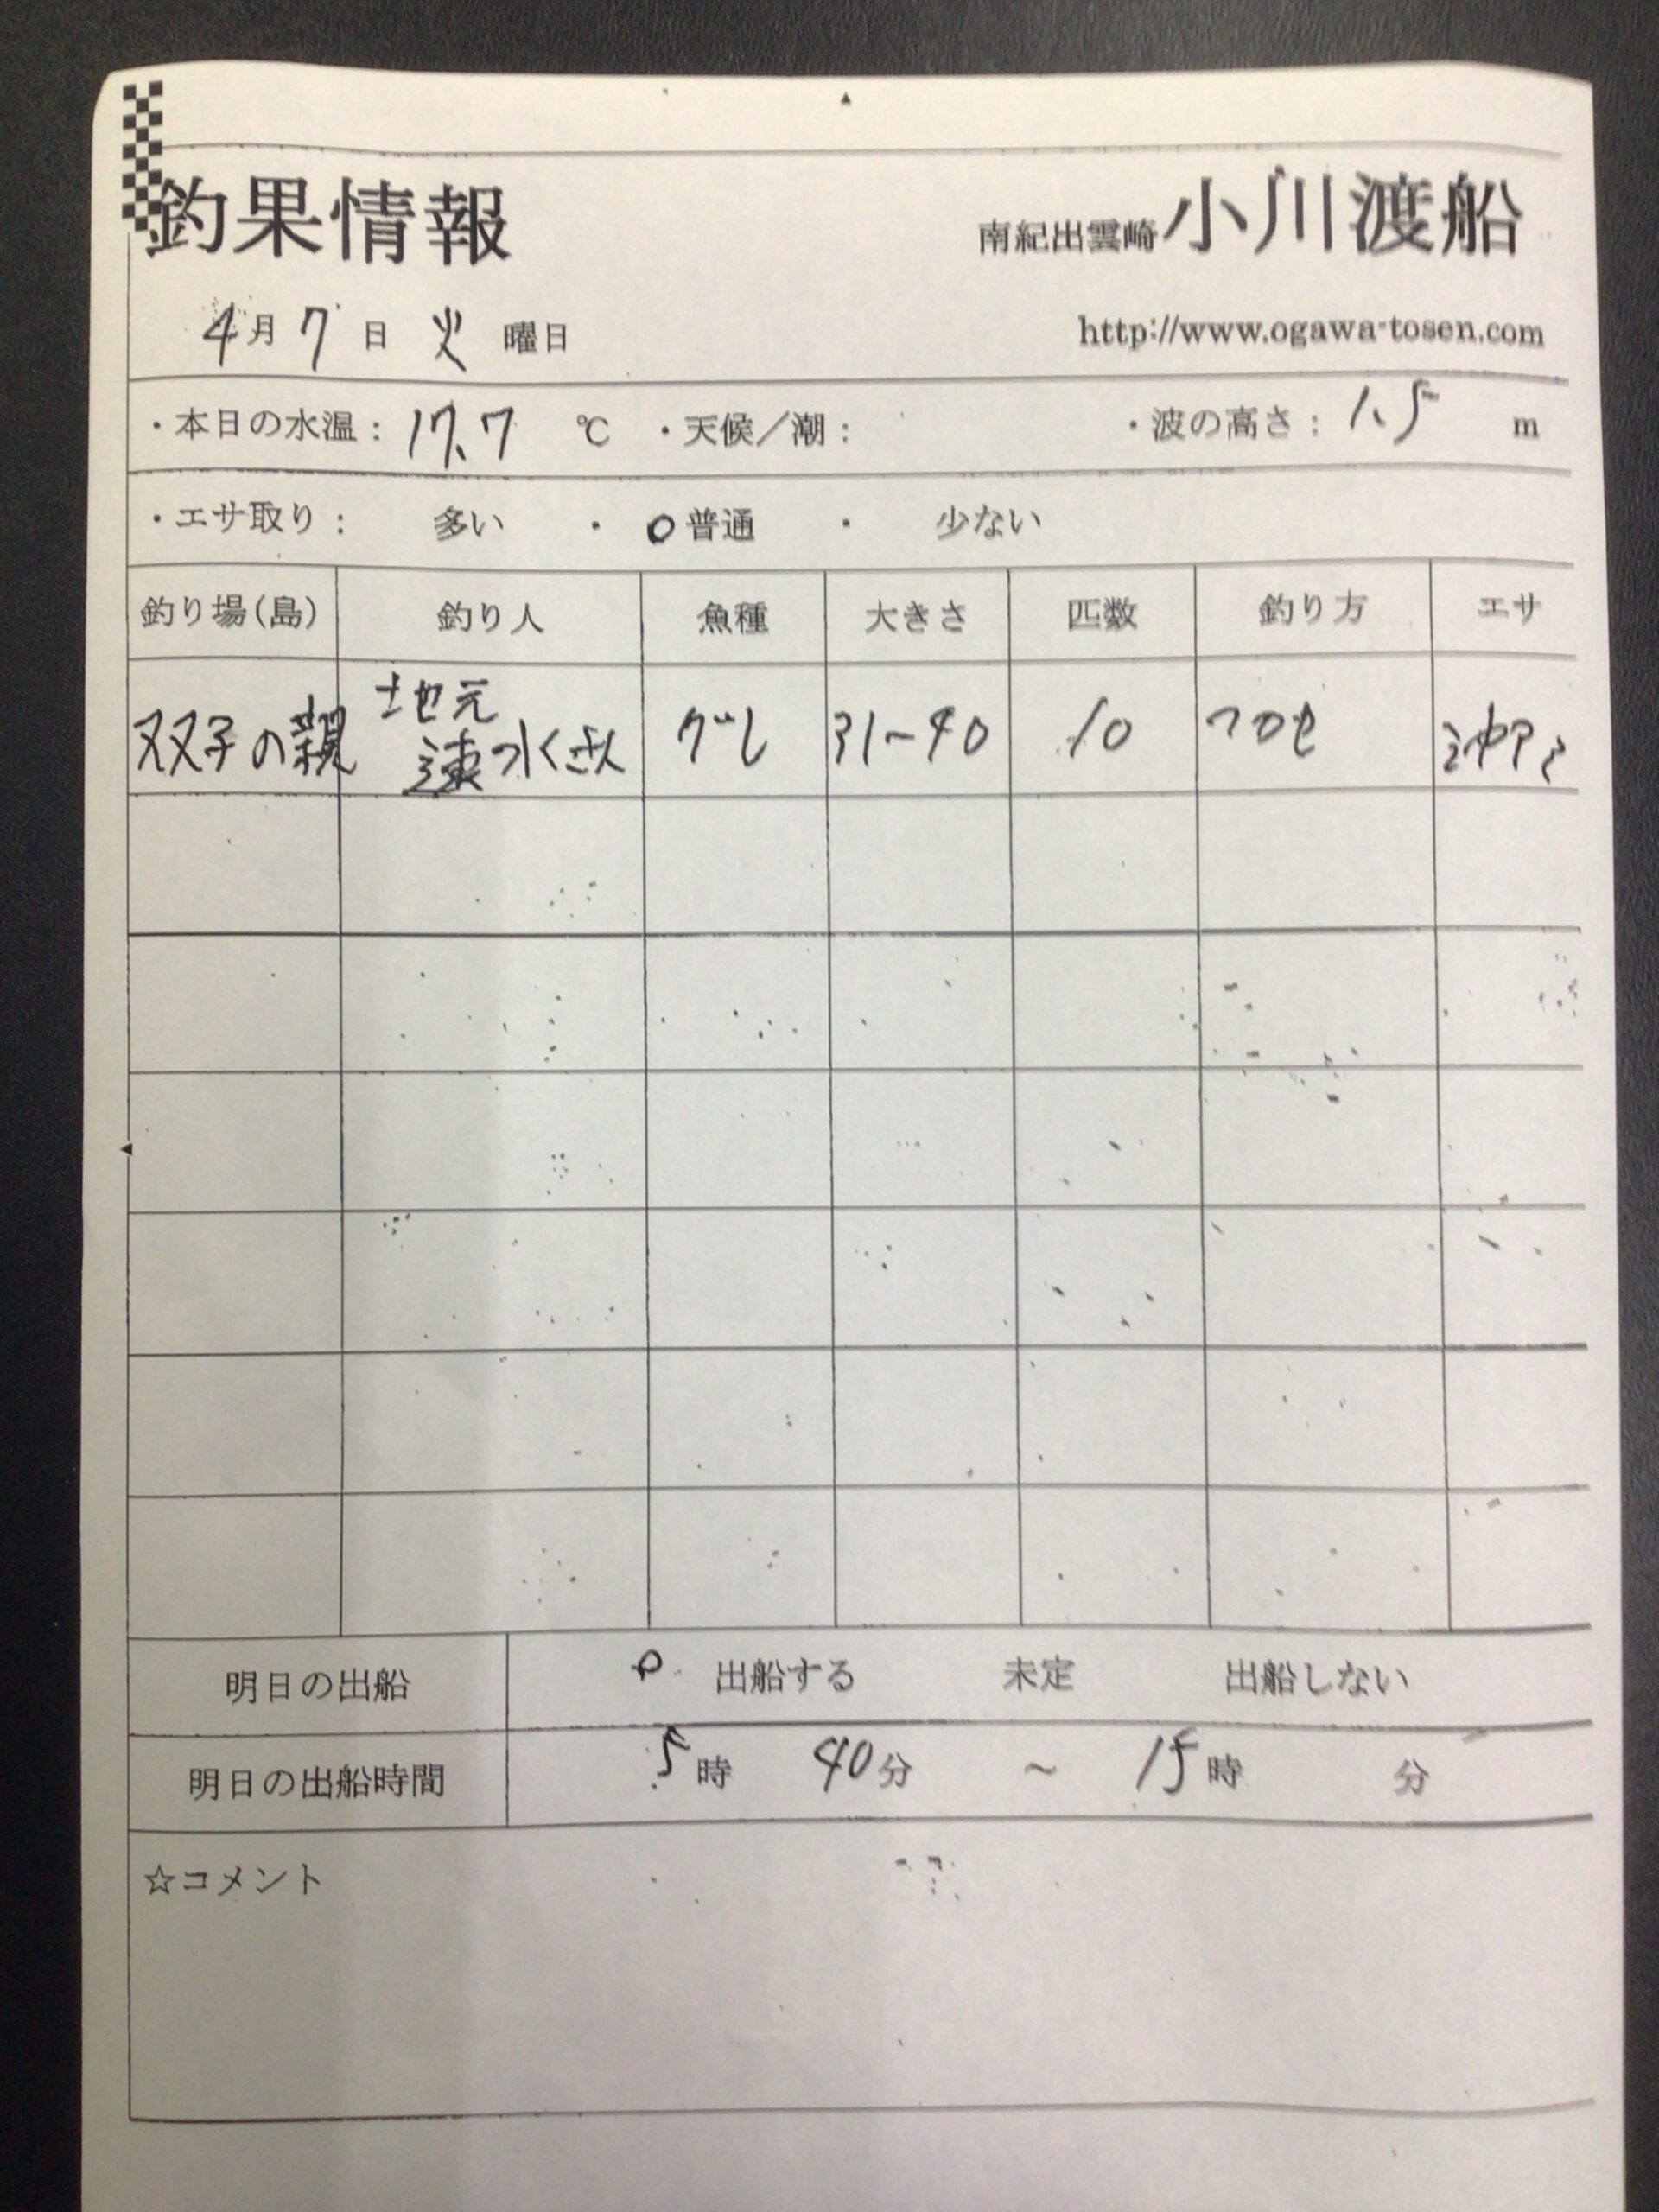 釣果情報
南紀出雲崎 小川渡船
4月7日 火 曜日
http://www.ogawa-tosen.com
・本日の水温：17.7 ℃ ・天候／潮： ・波の高さ：1.5 m
・エサ取り： 多い ・ ○普通 ・ 少ない
釣り場(島) 釣り人 魚種 大きさ 匹数 釣り方 エサ
地元
双子の親 速水くさん グレ 31~40 10 フカセ 沖アミ
明日の出船 ○ 出船する 未定 出船しない
明日の出船時間 5時 40分 ～ 15時 分
☆コメント